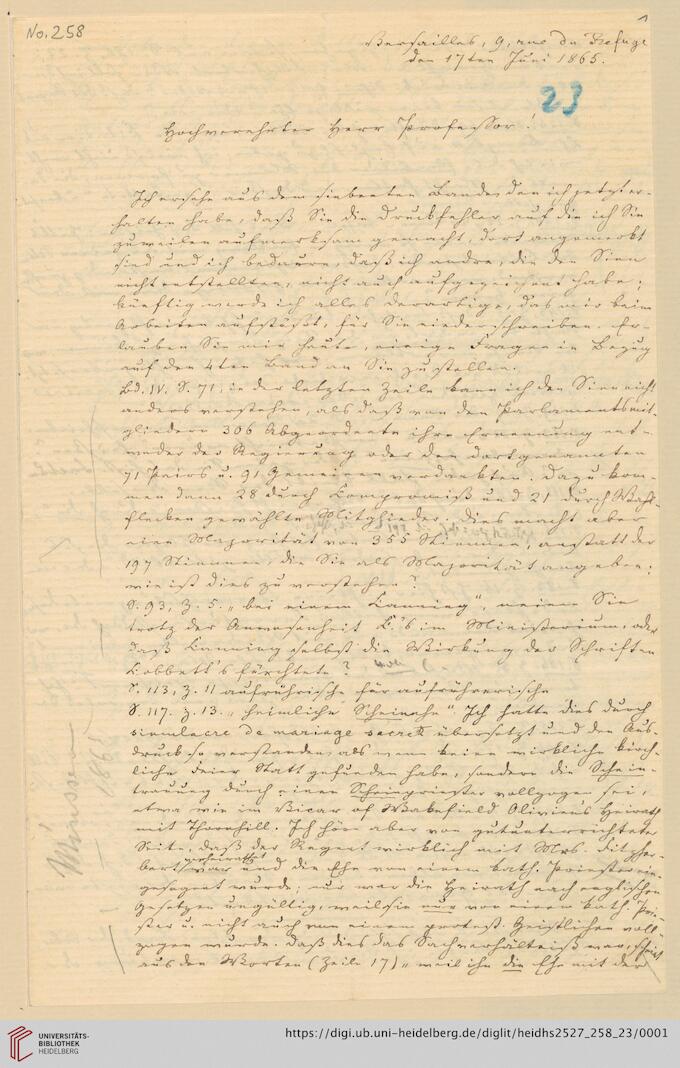 No. 258
1
Versailles, 9, rue du Refuge
den 17ten Juni 1865.
23
Hochverehrter Herr Professor!
Ich ersehe aus dem siebenten Bande, den ich jetzt er-
halten habe, daß Sie die Druckfehler, auf die ich Sie
zuweilen aufmerksam gemacht, dort angemerkt
sind und ich bedaure, daß ich andre, die den Sinn
nicht entstellten, nicht auch aufgezeichnet habe;
künftig werde ich alles derartige, das mir beim
Arbeiten aufstößt, für Sie niederschreiben. Er-
lauben Sie mir heute, einige Fragen in Bezug
auf den 4ten Band an Sie zu stellen.
Bd. IV. S. 71, in der letzten Zeile kann ich den Sinn nicht
anders verstehen, als daß von den Parlamentsmit-
gliedern 306 Abgeordnete ihre Ernennung ent-
weder der Regierung oder den dortgenannten
71 Pairs u. 91 Gemeinen verdankten. Dazu kom-
men dann 28 durch Compromiß und 21 durch Wahl-
flecken gewählte Mitglieder. Dies macht aber
eine Majorität von 355 Stimmen, anstatt der
197 Stimmen, die Sie als Majorität angeben;
wie ist dies zu verstehen?
S. 93, Z. 5. „bei einem Canning", meinen Sie
trotz der Anwesenheit C.'s im Ministerium, oder
daß Canning selbst die Wirkung der Schriften
Cobbett's fürchtete?
S. 113, Z. 11 aufrührische für aufrührerische
S. 117. Z. 13. „heimliche Scheinehe" Ich hatte dies durch
simulacre de mariage secret übersetzt und den Aus-
druck so verstanden, als wenn keine wirkliche kirch-
liche Feier Statt gefunden habe, sondern die Schein-
trauung durch einen Scheinpriester vollzogen sei,
etwa wie im Vicar of Wakefield Olivia's Heirath
mit Thornhill. Ich höre aber von gutunterrichteter
Seite, daß der Regent wirklich mit Mrs. Fitzher-
bert verheirathet war und die Ehe von einem kath. Priester ein-
gesegnet wurde; nur war die Heirath nach englischen
Gesetzen ungültig, weil sie nur von einem kath. Prie-
ster u. nicht auch von einem protest. Geistlichen voll-
zogen wurde. Daß dies das Sachverhältniß war, scheint
aus den Worten (Zeile 17) „weil ihn die Ehe mit der
1865
UNIVERSITÄTS-
BIBLIOTHEK
HEIDELBERG
https://digi.ub.uni-heidelberg.de/diglit/heidhs2527_258_23/0001